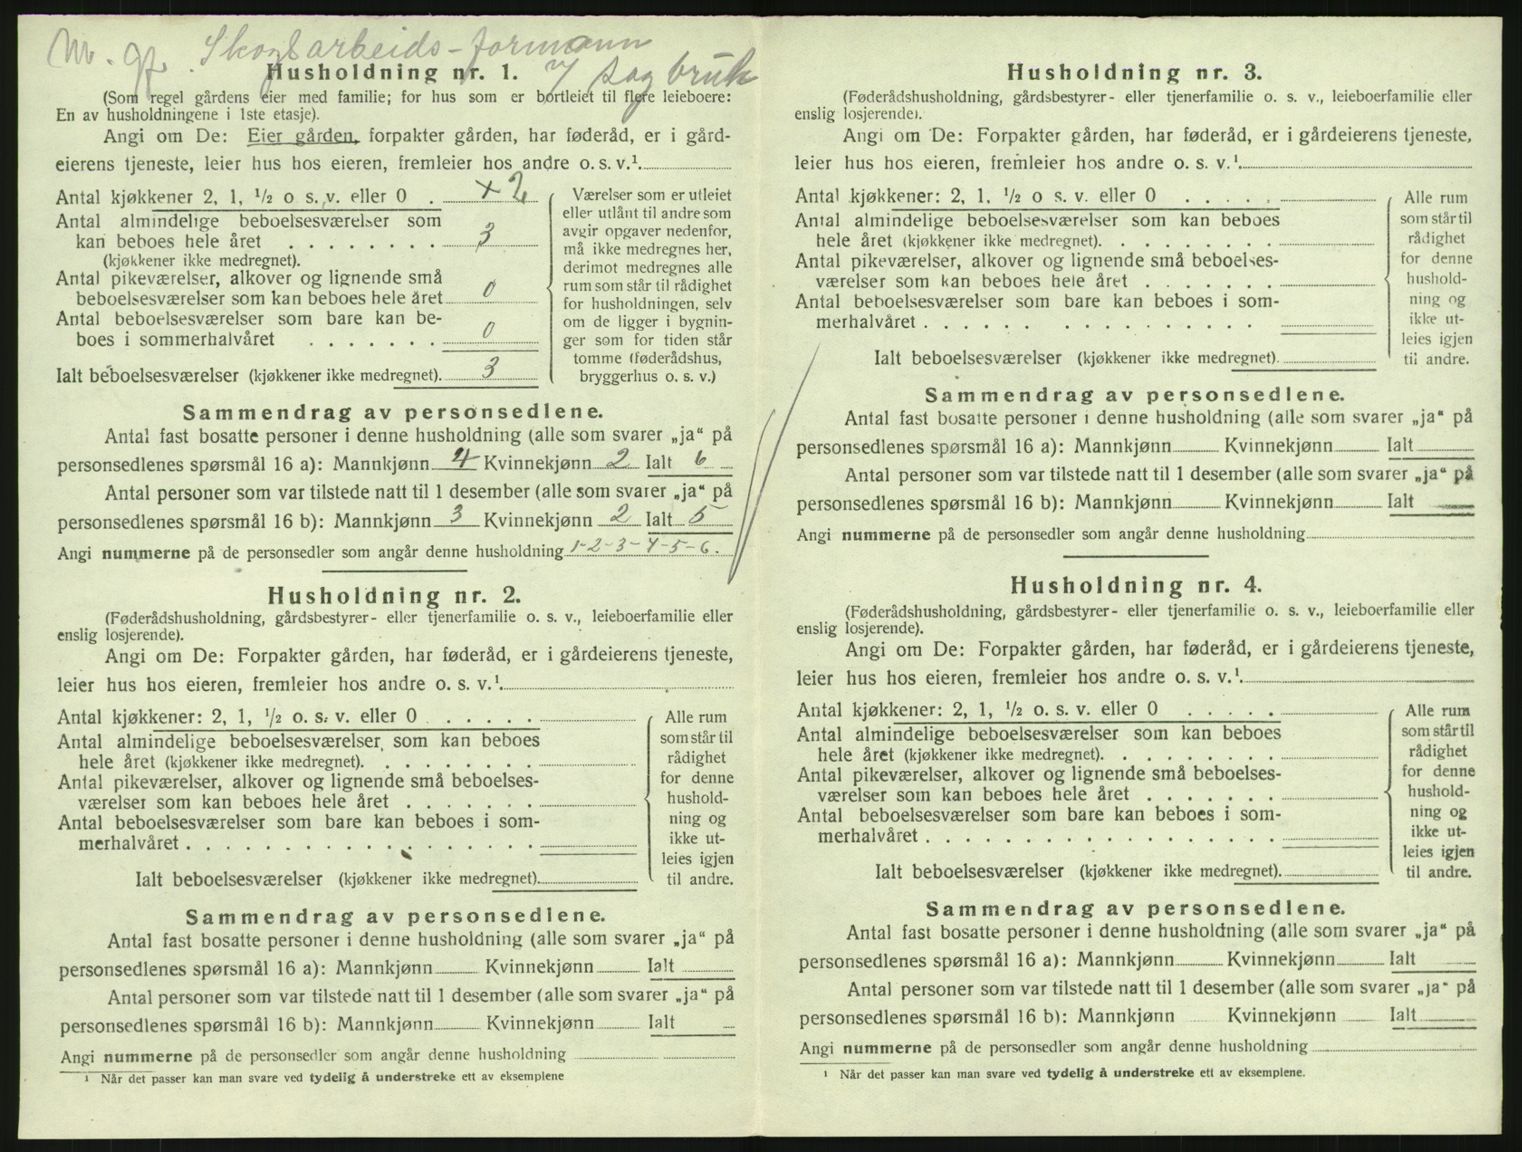 M. gf. Skogsarbeids-formann
v/ sagbruk
Husholdning nr. 1.
(Som regel gårdens eier med familie; for hus som er bortleiet til flere leieboere:
En av husholdningene i 1ste etasje).
Angi om De: Eier gården, forpakter gården, har føderåd, er i gård-
eierens tjeneste, leier hus hos eieren, fremleier hos andre o. s. v.¹
Antal kjøkkener 2, 1, ½ o s. v. eller 0 . + 2
Antal almindelige beboelsesværelser som
kan beboes hele året . . . . . . . . 3
(kjøkkener ikke medregnet).
Antal pikeværelser, alkover og lignende små
beboelsesværelser som kan beboes hele året 0
Antal beboelsesværelser som bare kan be-
boes i sommerhalvåret . . . . . . . 0
Ialt beboelsesværelser (kjøkkener ikke medregnet). 3
Værelser som er utleiet
eller utlånt til andre som
avgir opgaver nedenfor,
må ikke medregnes her,
derimot medregnes alle
rum som står til rådighet
for husholdningen, selv
om de ligger i bygnin-
ger som for tiden står
tomme (føderådshus,
bryggerhus o. s. v.)
Sammendrag av personsedlene.
Antal fast bosatte personer i denne husholdning (alle som svarer „ja“ på
personsedlenes spørsmål 16 a): Mannkjønn 4 Kvinnekjønn 2 Ialt 6
Antal personer som var tilstede natt til 1 desember (alle som svarer „ja“ på
personsedlenes spørsmål 16 b): Mannkjønn 3 Kvinnekjønn 2 Ialt 5
Angi nummerne på de personsedler som angår denne husholdning 1-2-3-4-5-6.
Husholdning nr. 2.
(Føderådshusholdning, gårdsbestyrer- eller tjenerfamilie o. s. v., leieboerfamilie eller
enslig losjerende).
Angi om De: Forpakter gården, har føderåd, er i gårdeierens tjeneste,
leier hus hos eieren, fremleier hos andre o. s. v.¹
Antal kjøkkener: 2, 1, ½ o. s. v. eller 0 . . . . . .
Antal almindelige beboelsesværelser som kan beboes
hele året (kjøkkener ikke medregnet). . . . . . . . .
Antal pikeværelser, alkover og lignende små beboelses-
værelser som kan beboes hele året . . . . . . .
Antal beboelsesværelser som bare kan beboes i som-
merhalvåret . . . . . . . . . . . . . . . . . .
Ialt beboelsesværelser (kjøkkener ikke medregnet).
Alle rum
som står til
rådighet
for denne
hushold-
ning og
ikke ut-
leies igjen
til andre.
Sammendrag av personsedlene.
Antal fast bosatte personer i denne husholdning (alle som svarer „ja“ på
personsedlenes spørsmål 16 a): Mannkjønn Kvinnekjønn Ialt
Antal personer som var tilstede natt til 1 desember (alle som svarer „ja“ på
personsedlenes spørsmål 16 b): Mannkjønn Kvinnekjønn Ialt
Angi nummerne på de personsedler som angår denne husholdning
¹ Når det passer kan man svare ved tydelig å understreke ett av eksemplene
Husholdning nr. 3.
(Føderådshusholdning, gårdsbestyrer- eller tjenerfamilie o. s. v., leieboerfamilie eller
enslig losjerende).
Angi om De: Forpakter gården, har føderåd, er i gårdeierens tjeneste,
leier hus hos eieren, fremleier hos andre o. s. v.¹
Antal kjøkkener: 2, 1, ½ o s. v. eller 0 . . . . .
Antal almindelige beboelsesværelser som kan beboes
hele året (kjøkkener ikke medregnet). . . . . . . . .
Antal pikeværelser, alkover og lignende små beboelses-
værelser som kan beboes hele året . . . . . . .
Antal beboelsesværelser som bare kan beboes i som-
merhalvåret . . . . . . . . . . . . . . . .
Ialt beboelsesværelser (kjøkkener ikke medregnet).
Alle rum
som står til
rådighet
for denne
hushold-
ning og
ikke ut-
leies igjen
til andre.
Sammendrag av personsedlene.
Antal fast bosatte personer i denne husholdning (alle som svarer „ja“ på
personsedlenes spørsmål 16 a): Mannkjønn Kvinnekjønn Ialt
Antal personer som var tilstede natt til 1 desember (alle som svarer „ja“ på
personsedlenes spørsmål 16 b): Mannkjønn Kvinnekjønn Ialt
Angi nummerne på de personsedler som angår denne husholdning
Husholdning nr. 4.
(Føderådshusholdning, gårdsbestyrer- eller tjenerfamilie o. s. v., leieboerfamilie eller
enslig losjerende).
Angi om De: Forpakter gården, har føderåd, er i gårdeierens tjeneste,
leier hus hos eieren, fremleier hos andre o. s. v.¹
Antal kjøkkener: 2, 1, ½ o. s. v. eller 0 . . . . .
Antal almindelige beboelsesværelser som kan beboes
hele året (kjøkkener ikke medregnet). . . . . . . . .
Antal pikeværelser, alkover og lignende små beboelses-
værelser som kan beboes hele året . . . . . . .
Antal beboelsesværelser som bare kan beboes i som-
merhalvåret . . . . . . . . . . . . . . . . . .
Ialt beboelsesværelser (kjøkkener ikke medregnet).
Alle rum
som står til
rådighet
for denne
hushold-
ning og
ikke ut-
leies igjen
til andre.
Sammendrag av personsedlene.
Antal fast bosatte personer i denne husholdning (alle som svarer „ja“ på
personsedlenes spørsmål 16 a): Mannkjønn Kvinnekjønn Ialt
Antal personer som var tilstede natt til 1 desember (alle som svarer „ja“ på
personsedlenes spørsmål 16 b): Mannkjønn Kvinnekjønn Ialt
Angi nummerne på de personsedler som angår denne husholdning
¹ Når det passer kan man svare ved tydelig å understreke ett av eksemplene.